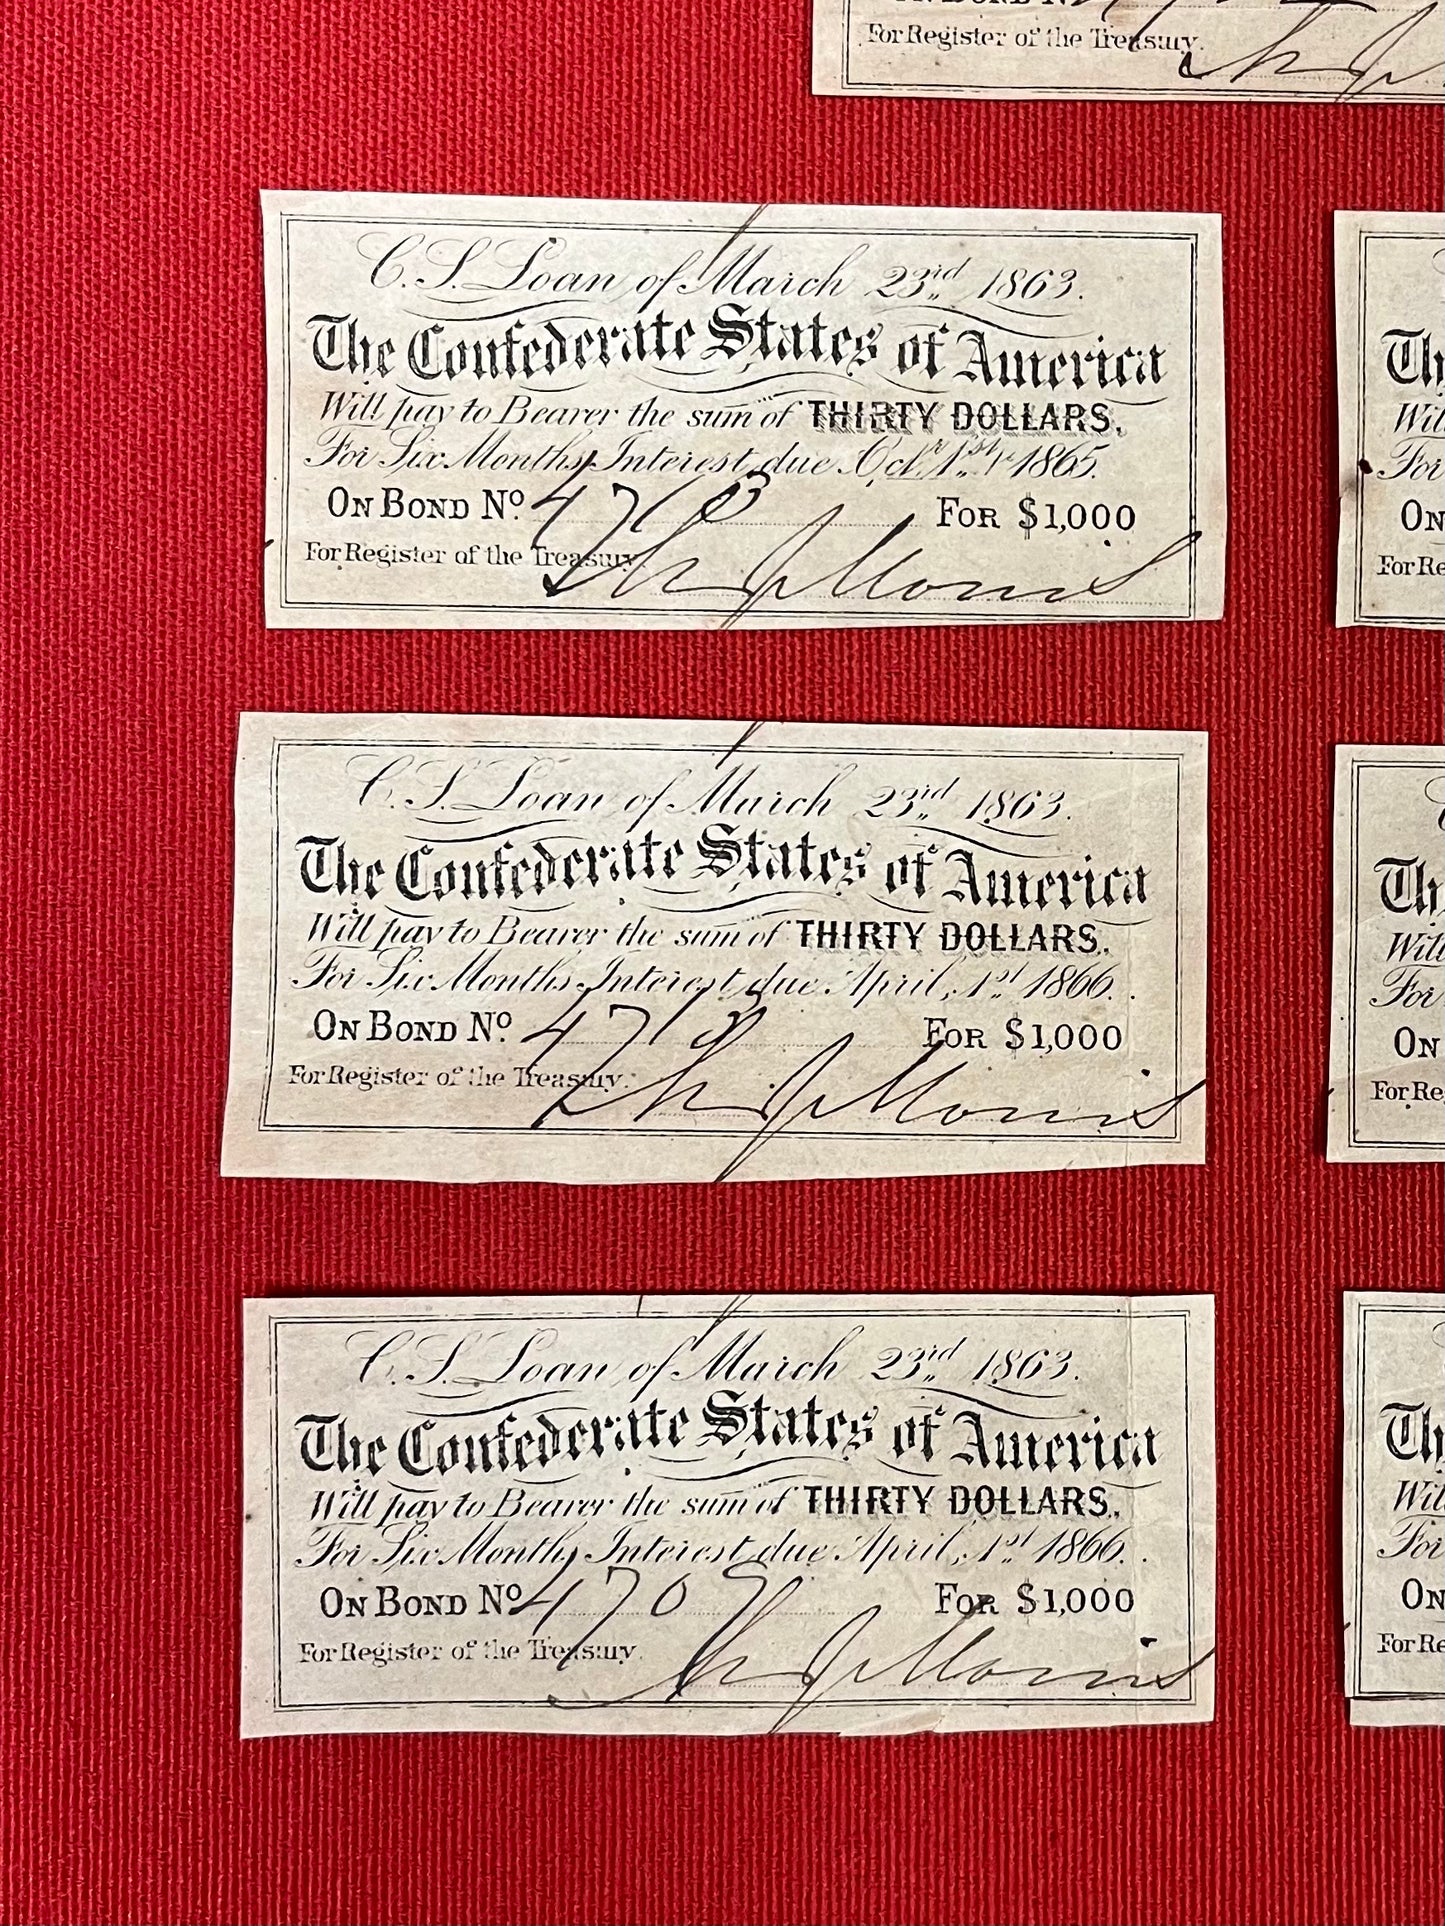 For Register of the Treasury.
C. S. Loan of March 23rd., 1863.
The Confederate States of America
Will pay to Bearer the sum of THIRTY DOLLARS,
For Six Months Interest due Octr. 1st. 1865.
ON BOND No. FOR $1,000
For Register of the Treasury. Morris
C. S. Loan of March 23rd., 1863.
The Confederate States of America
Will pay to Bearer the sum of THIRTY DOLLARS,
For Six Months Interest due April, 1st. 1866.
ON BOND No. 4713 FOR $1,000
For Register of the Treasury. Morris
C. S. Loan of March 23rd., 1863.
The Confederate States of America
Will pay to Bearer the sum of THIRTY DOLLARS,
For Six Months Interest due April, 1st. 1866.
ON BOND No. 4709 FOR $1,000
For Register of the Treasury. Morris